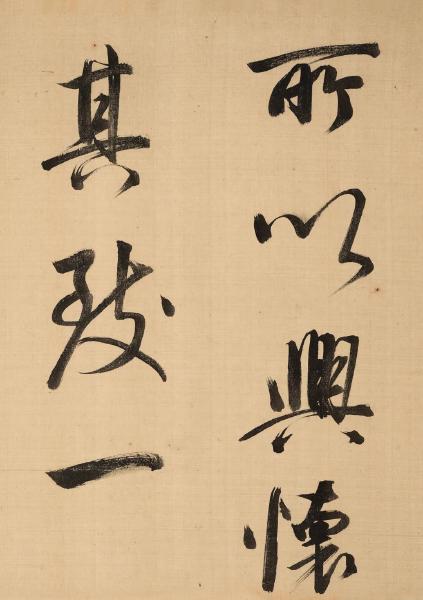 所以興懷
其致一